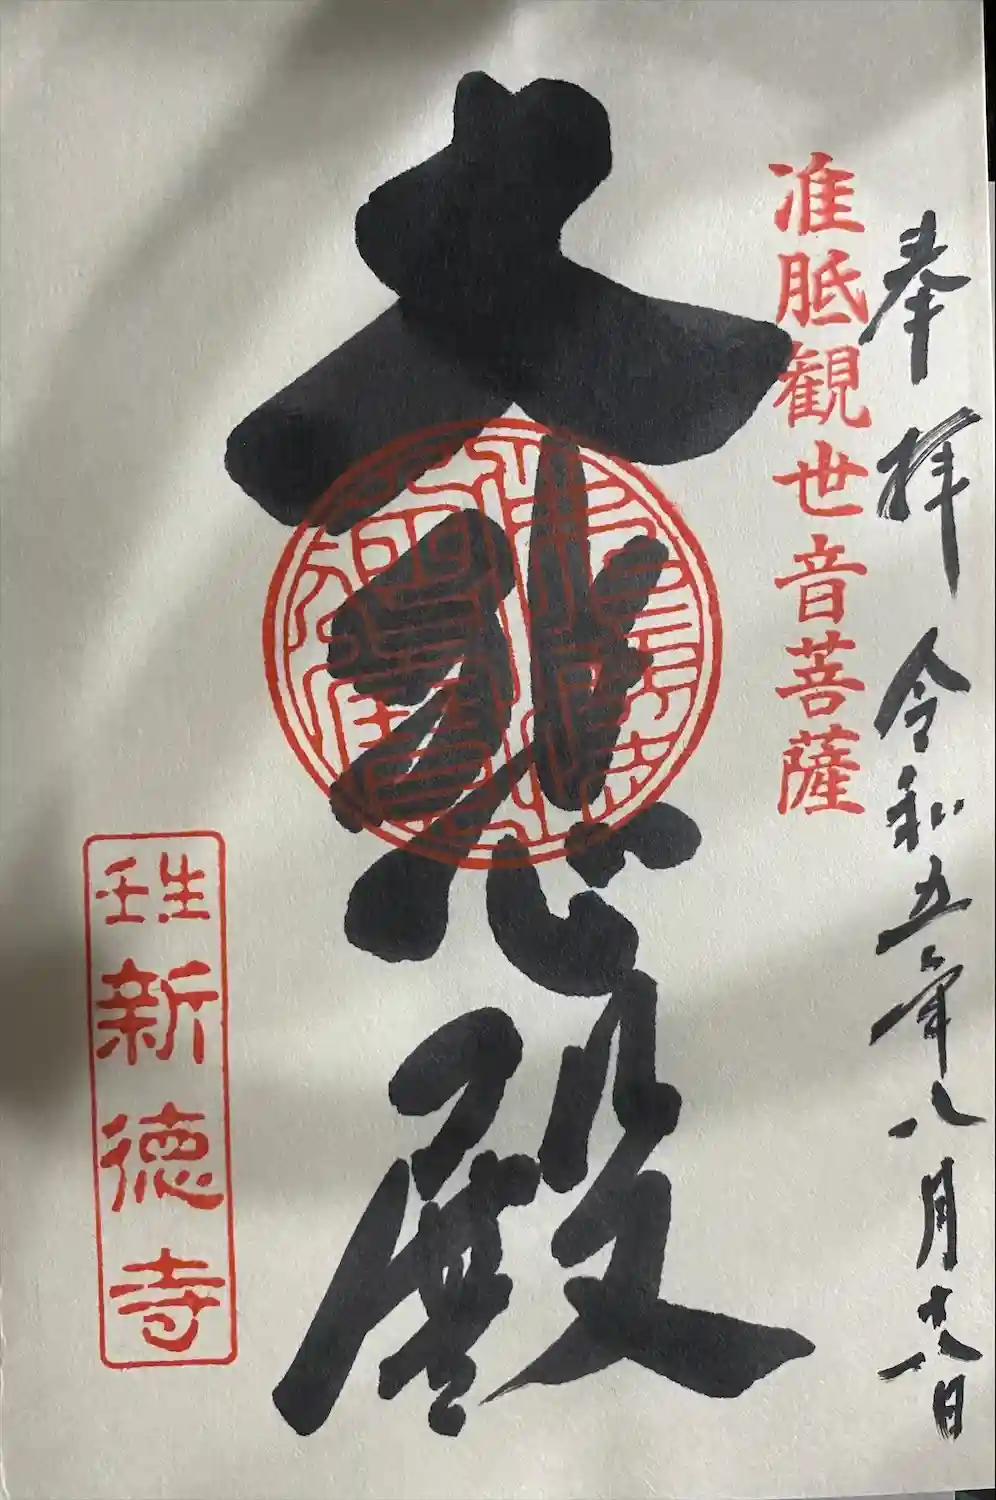 奉拝 令和五年八月十八日
准胝観世音菩薩
大悲殿
壬生
新徳寺